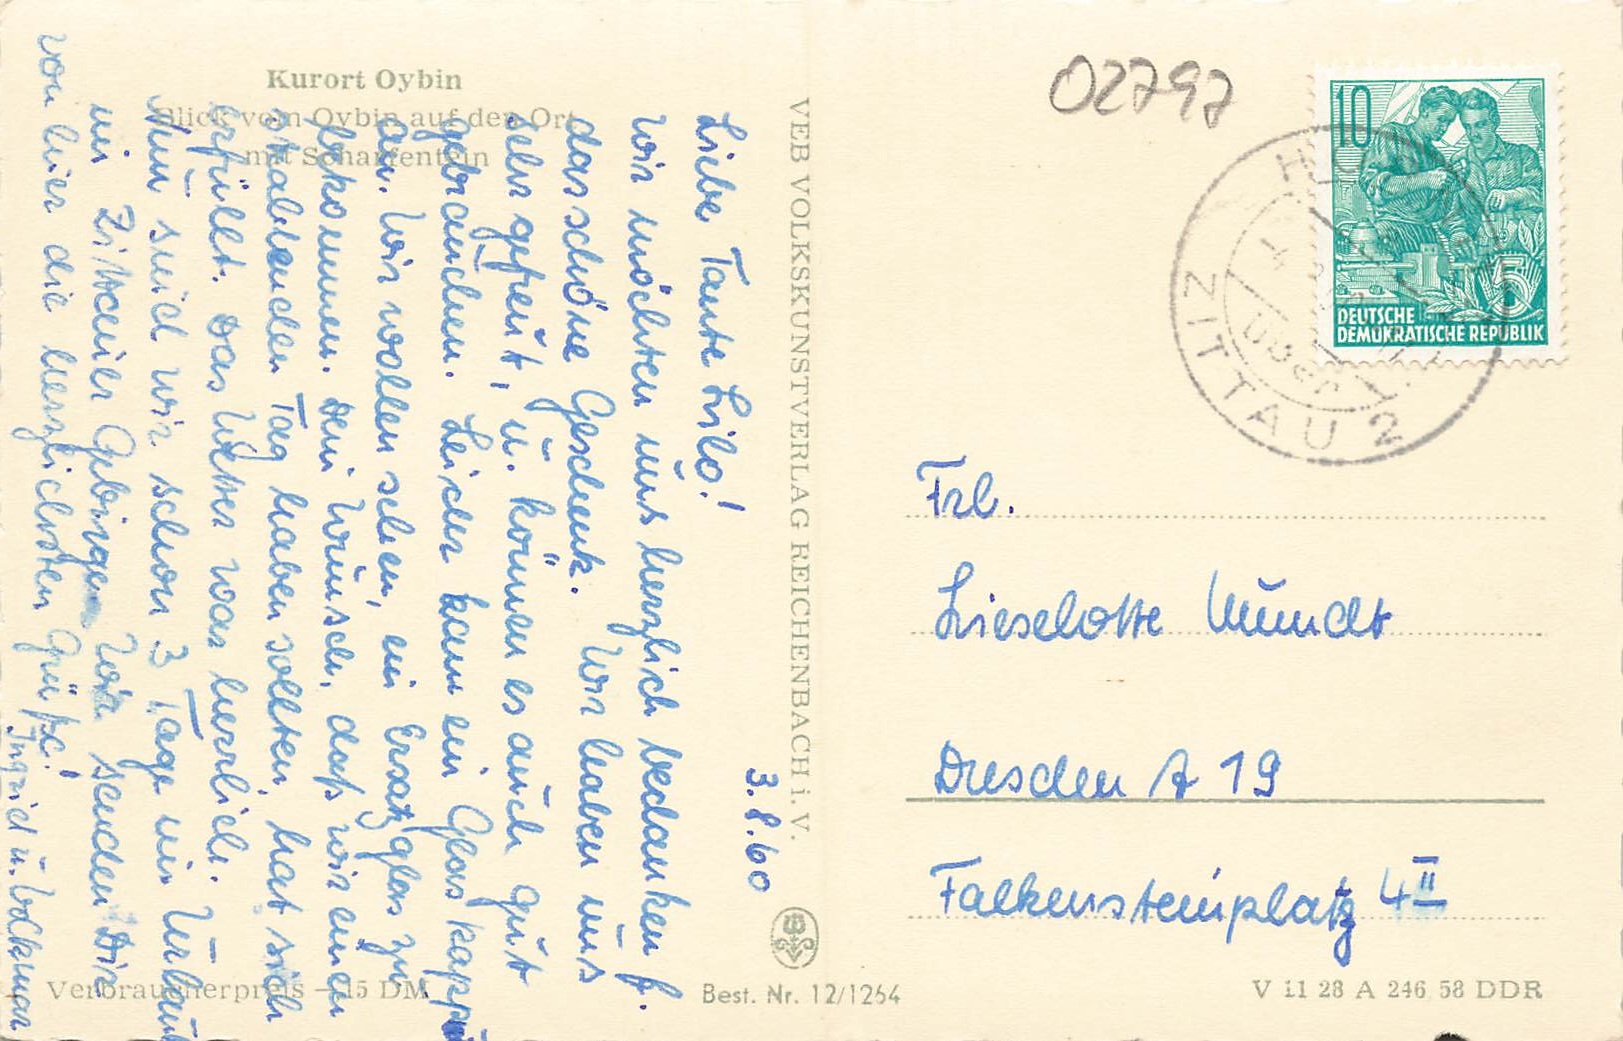 Kurort Oybin
Blick vom Oybin auf den Ort
mit Scharfenstein
3.8.60
Liebe Tante Lilo!
Wir möchten uns herzlich bedanken f.
das schöne Geschenk. Wir haben uns
sehr gefreut, u. können es auch gut
gebrauchen. Leider kam ein Glas kapput
an. Wir wollen sehen, ein Ersatzglas zu
bekommen. Dein Wunsch, daß wir einen
strahlenden Tag haben sollten, hat sich
erfüllt. Das Wetter war herrlich.
Nun sind wir schon 3 Tage im Urlaub
im Zittauer Gebirge. Wir senden Dir
von hier die herzlichsten Grüße!
Ingrid u. Volkmar
Verbraucherpreis —15 DM
VEB VOLKSKUNSTVERLAG REICHENBACH i. V.
Best. Nr. 12/1254
02797
10
5
DEUTSCHE
DEMOKRATISCHE REPUBLIK
über
ZITTAU 2
Frl.
Lieselotte Mundt
Dresden A 19
Falkensteinplatz 4 II
V 11 28 A 246 58 DDR